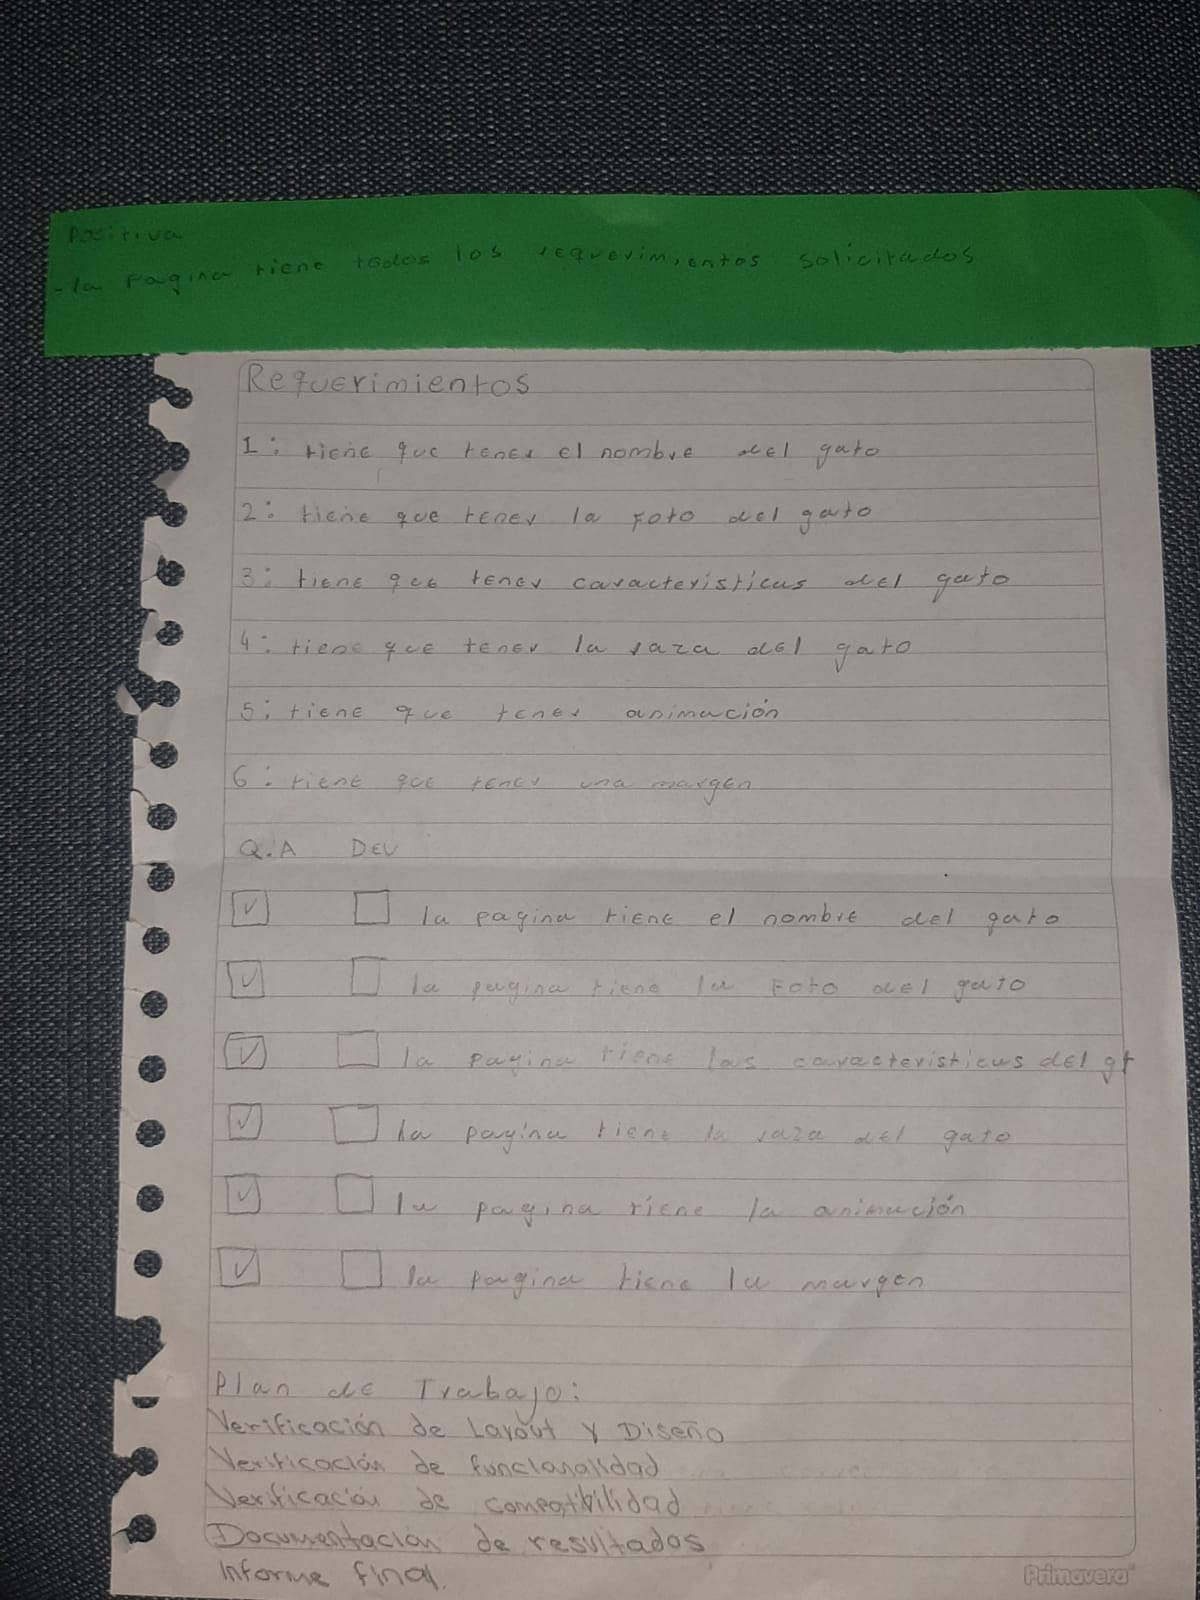 Positiva
- la pagina tiene todos los requerimientos solicitados
Requerimientos
1: tiene que tener el nombre del gato
2: tiene que tener la foto del gato
3: tiene que tener caracteristicas del gato
4: tiene que tener la raza del gato
5: tiene que tener animación
6: tiene que tener una margen
Q.A DEV
la pagina tiene el nombre del gato
la pagina tiene la foto del gato
la pagina tiene las caracteristicas del gt
la pagina tiene la raza del gato
la pagina tiene la animación
la pagina tiene la margen
Plan de Trabajo:
Verificación de Layout y Diseño
Verificación de funcionalidad
Verificación de compatibilidad
Documentación de resultados
Informe final.
Primavera